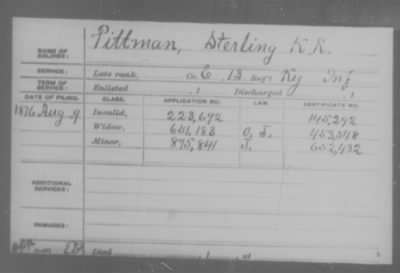 NAME OF SOLDIER: Pittman, Sterling K.R.
SERVICE: Late rank, Co. E 13 Reg't Ky Inf
TERM OF SERVICE: Enlisted , 1 Discharged , 1
DATE OF FILING. CLASS. APPLICATION NO. LAW. CERTIFICATE NO.
1876 Aug 9 Invalid, 223,692 145,242
Widow, 651,183 O. J. 453,548
Minor, 875,841 J. 652,432
ADDITIONAL SERVICES:
REMARKS:
Died